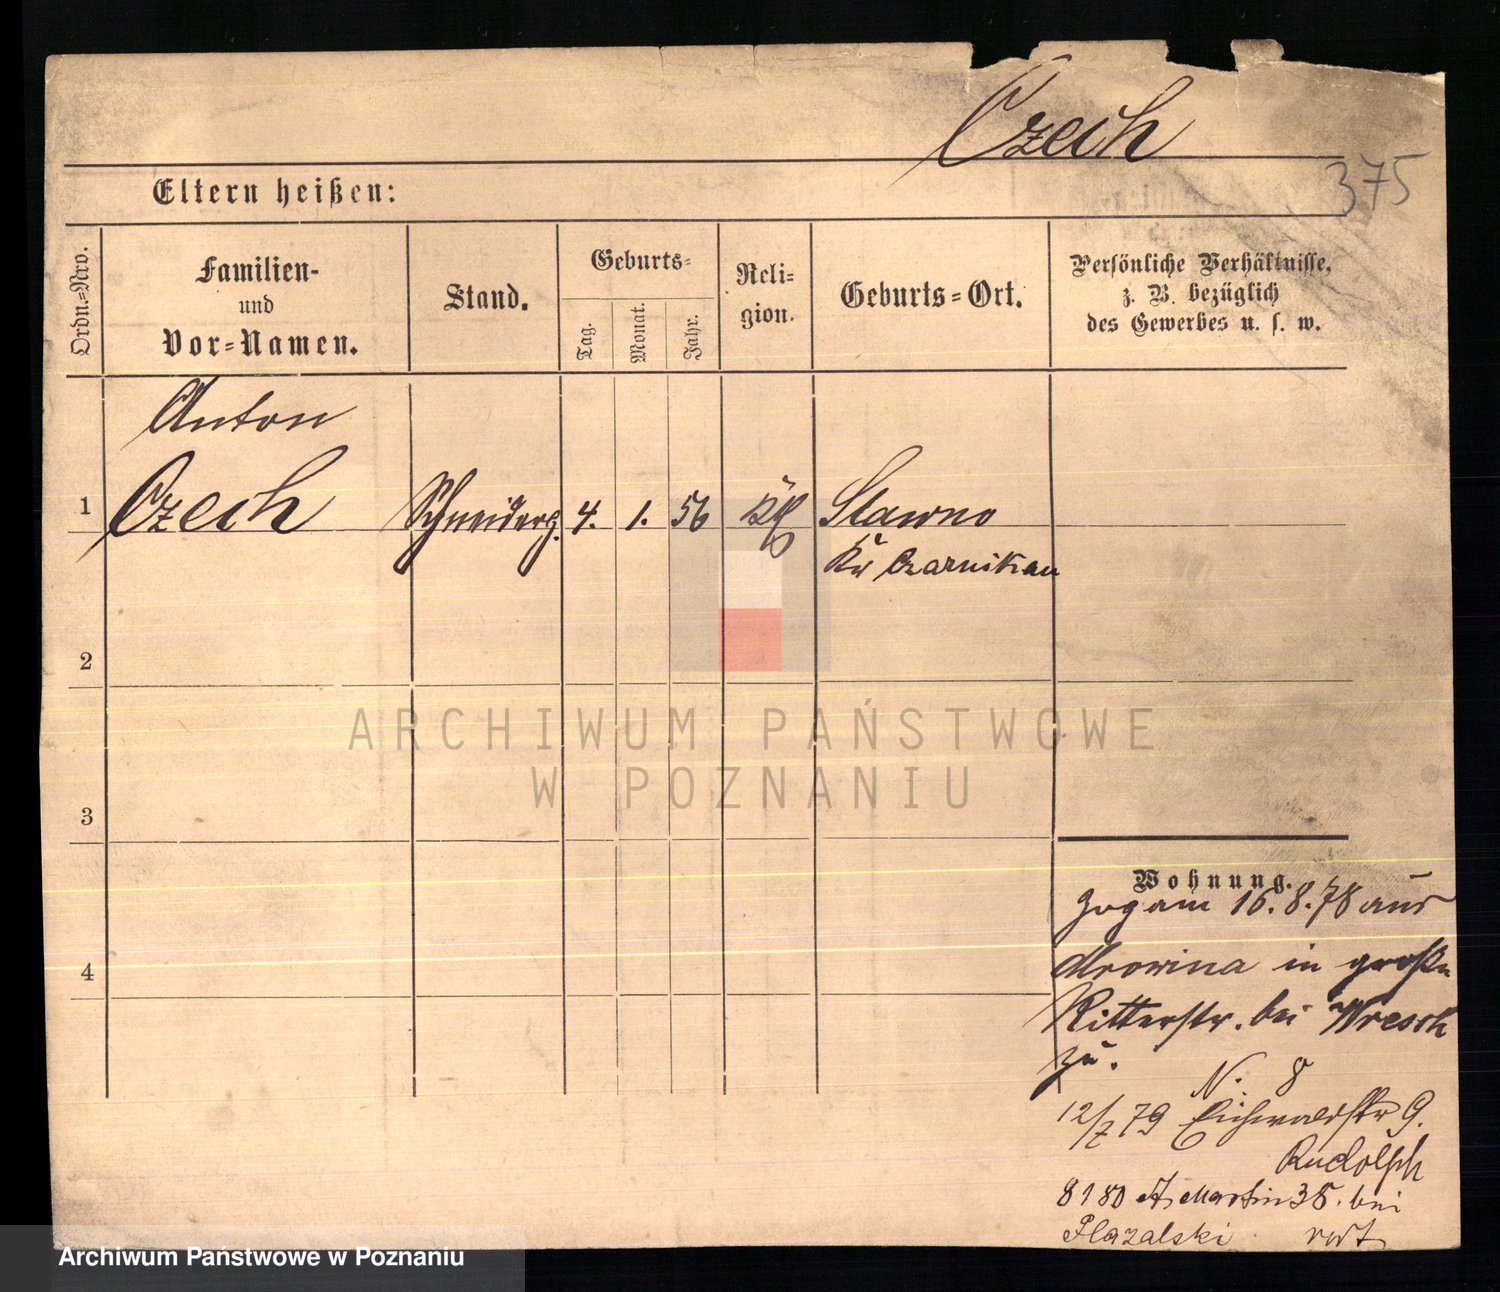 Czech
375
Eltern heißen:
Ordn.-Nro.
Familien-
und
Vor-Namen.
Stand.
Geburts-
Tag.
Monat.
Jahr.
Reli-
gion.
Geburts-Ort.
Persönliche Verhältnisse,
z. B. bezüglich
des Gewerbes u. s. w.
Anton
1 Czech Schneiderg. 4. 1. 56 Slawno
Kr Czarnikau
2
ARCHIWUM PAŃSTWOWE
W POZNANIU
3
Wohnung.
Zog am 16. 8. 78 aus
Mrowina in große
Ritterstr. bei Wresch
zu.
N. 8
12/7 79 Eichwaldstr 9.
Rudolph
8 1 80 St. Martin 35. bei
Plazalski
4
Archiwum Państwowe w Poznaniu